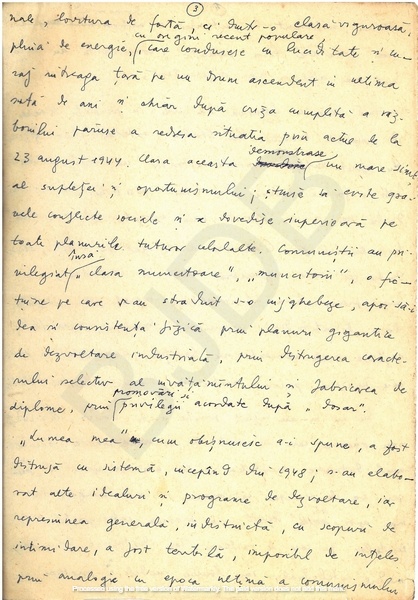 3
nale, lovitura de forță ci dintr-o clasă viguroasă,
cu origini recent populare,
plină de energie, care condusese cu luciditate și cu-
raj întreaga țară pe un drum ascendent în ultima
sută de ani și chiar după criza cumplită a răz-
boiului păruse a redresa situația prin actul de la
demonstrase
23 august 1944. Clasa aceasta un mare simț
al supleței și oportunismului; știuse să evite gra-
vele conflicte sociale și se dovedise superioară pe
toate planurile tuturor celorlalte. Comuniștii au pri-
însă
vilegiat „clasa muncitoare”, „muncitorii”, o fic-
țiune pe care s-au străduit s-o înjghebeze, apoi să-i
dea și consistență fizică prin planuri gigantice
de dezvoltare industrială, prin distrugerea caracte-
rului selectiv al învățământului și fabricarea de
promovări și
diplome, prin privilegii acordate după „dosar”.
„Lumea mea”, cum obișnuiesc a-i spune, a fost
distrusă cu sistemă, începând din 1948; s-au elabo-
rat alte idealuri și programe de dezvoltare, iar
represiunea generală, indistinctă, cu scopuri de
intimidare, a fost teribilă, imposibil de înțeles
prin analogie cu epoca ultimă a comunismului